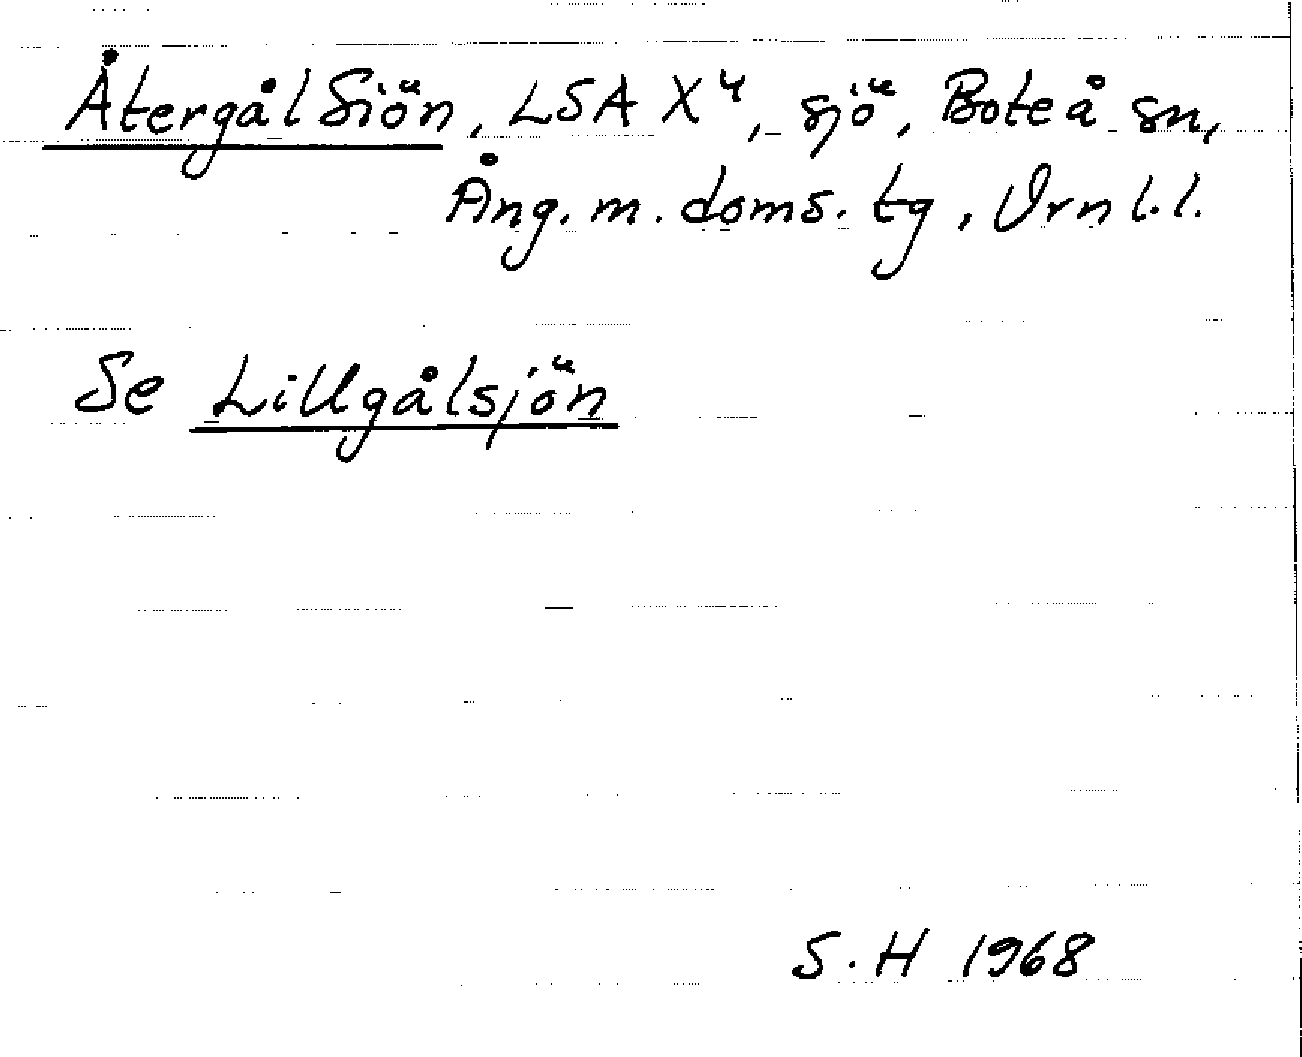 Återgål Siön, LSA X⁴, sjö, Boteå sn,
Ång. m. doms. tg, Vrnl.l.
Se Lillgålsjön
S. H 1968